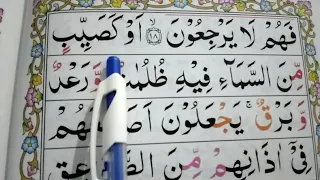 فَهُمْ لَا يَرْجِعُوْنَ ۙ﴿۱۸﴾ اَوْ كَصَيِّبٍ
مِّنَ السَّمَآءِ فِيْهِ ظُلُمٰتٌ وَّرَعْدٌ
وَّبَرْقٌ ۚ يَجْعَلُوْنَ اَصَابِعَهُمْ
فِيْۤ اٰذَانِهِمْ مِّنَ الصَّوَاعِقِ